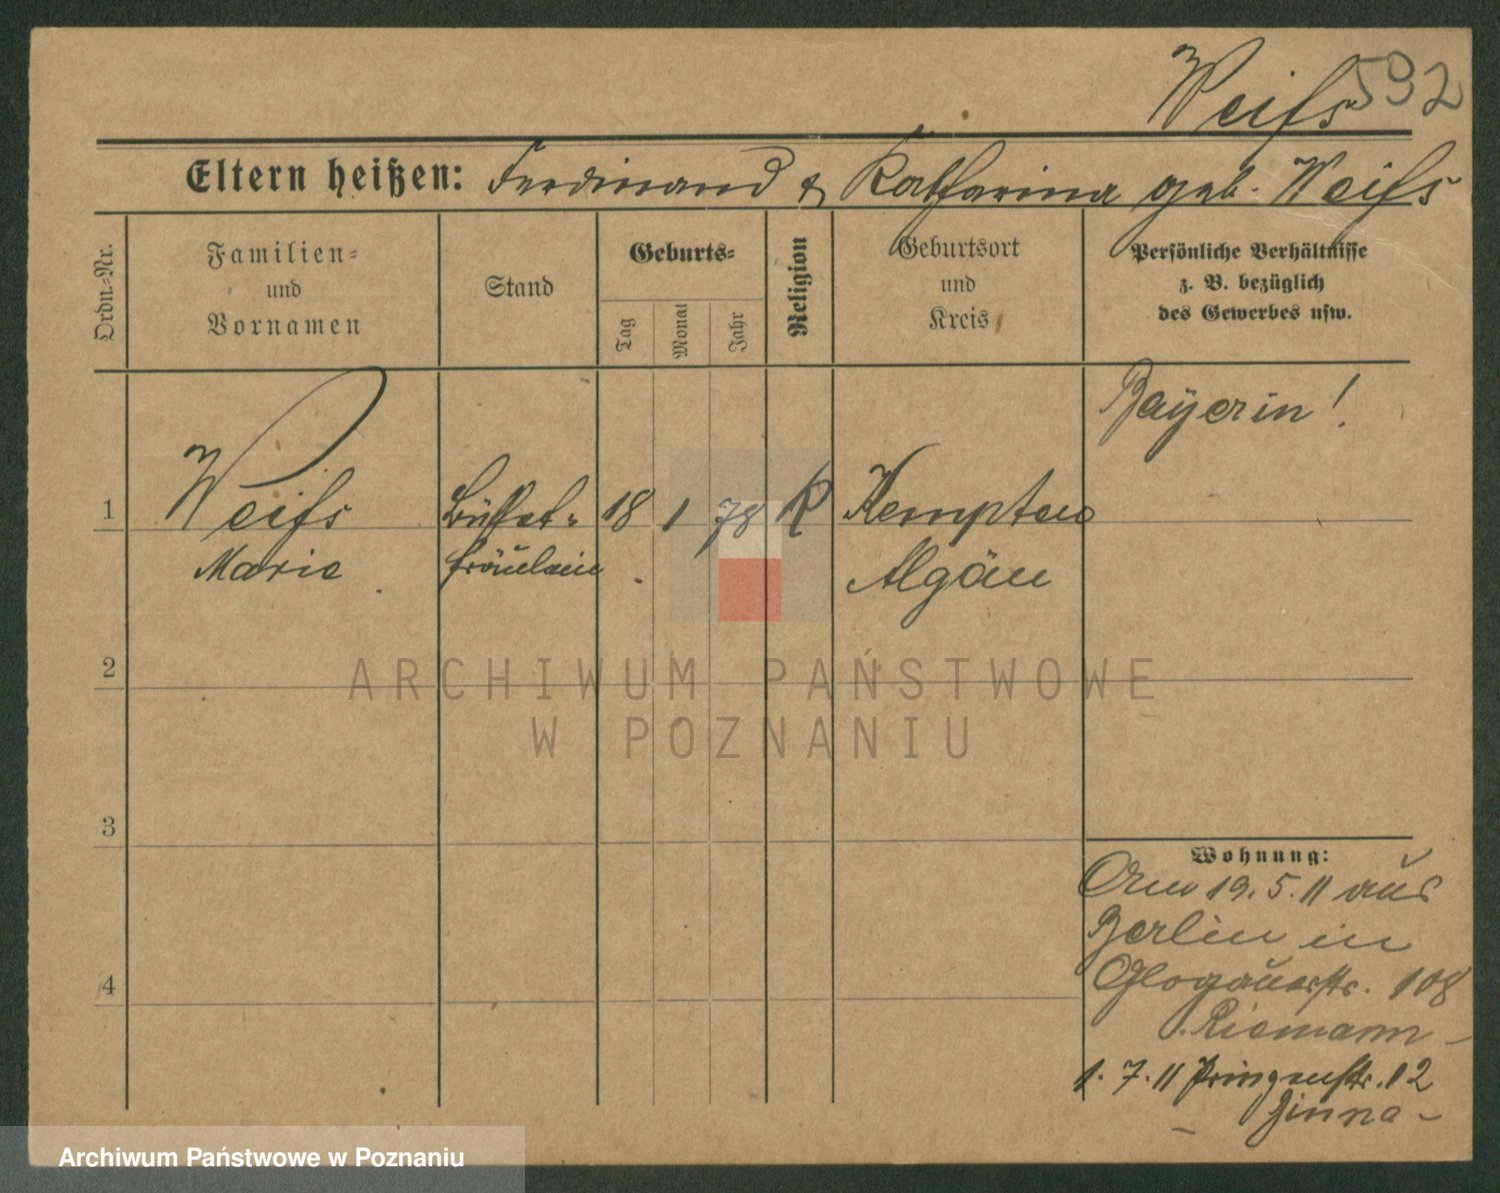 Weiſs 592
Eltern heißen: Ferdinand & Katharina geb. Weiſs
Ordn.-Nr.
Familien-
und
Vornamen
Stand
Geburts-
Tag
Monat
Jahr
Religion
Geburtsort
und
Kreis
Persönliche Verhältnisse
z. B. bezüglich
des Gewerbes usw.
Bayerin!
1 Weiſs Büffet- 18 1 78 K Kempten
Marie fräulein Algäu
2
ARCHIWUM PAŃSTWOWE
W POZNANIU
3
Wohnung:
19.5.11 aus
Berlin in
Glogauerstr. 108
Riemann -
4
1.7.11 Prinzenstr. 12
Zinna -
Archiwum Państwowe w Poznaniu